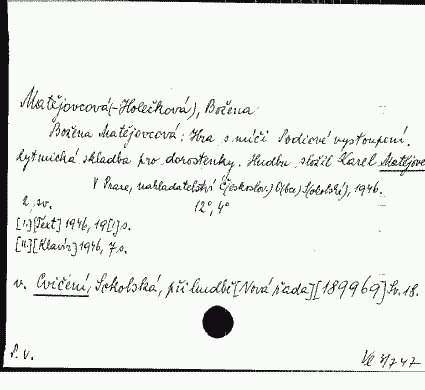 Matějovcová(-Holečková), Božena
Božena Matějovcová: Hra s míči Pódiové vystoupení.
Rytmická skladba pro dorostenky. Hudbu složil Karel Matějovc
V Praze, nakladatelství Č(eskoslov.) O(bce) S(okolské), 1946.
2 sv. 12°, 4°
[I.] [Text] 1946, 19[1] s.
[II.] [Klavír] 1946, 7 s.
v. Cvičení, Sokolská, při hudbě [Nová řada] [189969] Sv. 18.
P. v.